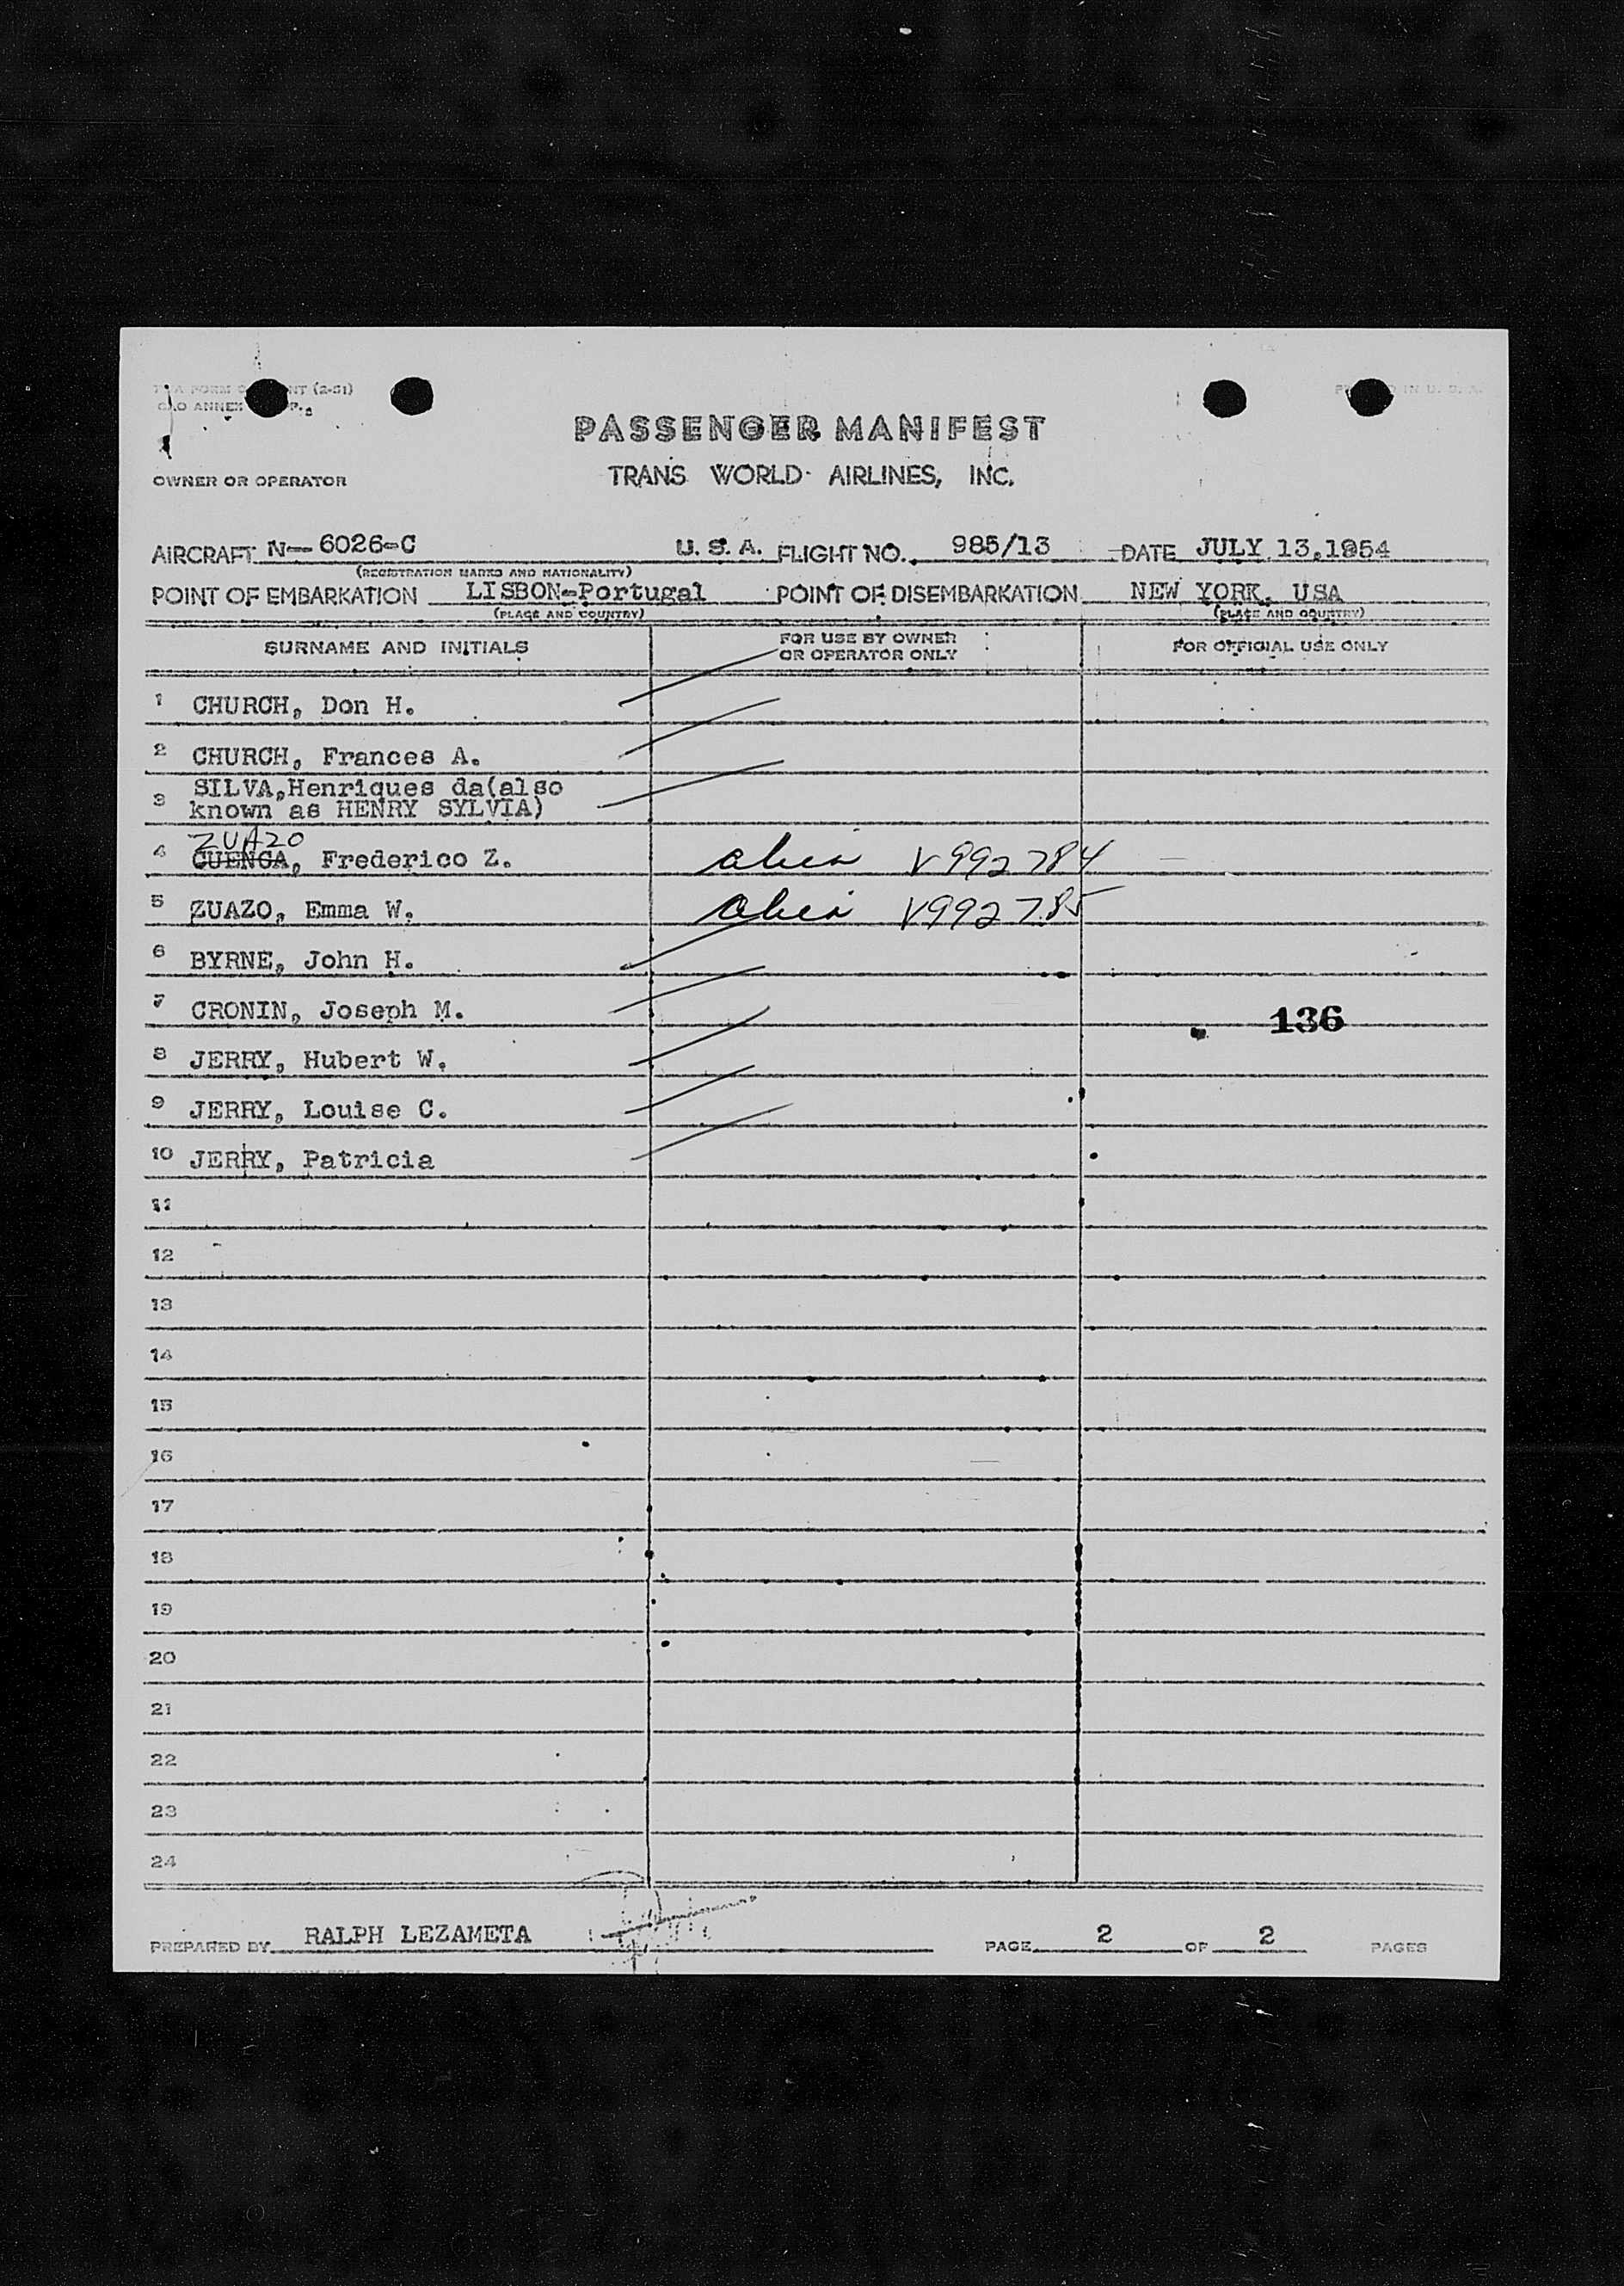 PASSENGER MANIFEST
TRANS WORLD AIRLINES, INC.
OWNER OR OPERATOR
AIRCRAFT N-6026-C U. S. A. FLIGHT NO. 985/13 DATE JULY 13,1954
(REGISTRATION MARKS AND NATIONALITY)
POINT OF EMBARKATION LISBON-Portugal POINT OF DISEMBARKATION NEW YORK, USA
(PLACE AND COUNTRY) (PLACE AND COUNTRY)
SURNAME AND INITIALS FOR USE BY OWNER OR OPERATOR ONLY FOR OFFICIAL USE ONLY
1 CHURCH, Don H.
2 CHURCH, Frances A.
3 SILVA,Henriques da(also
known as HENRY SYLVIA)
ZUAZO
4 CUENCA, Frederico Z. alien V992784
5 ZUAZO, Emma W. alien V992785
6 BYRNE, John H.
7 CRONIN, Joseph M. 136
8 JERRY, Hubert W.
9 JERRY, Louise C.
10 JERRY, Patricia
11
12
13
14
15
16
17
18
19
20
21
22
23
24
PREPARED BY RALPH LEZAMETA PAGE 2 OF 2 PAGES